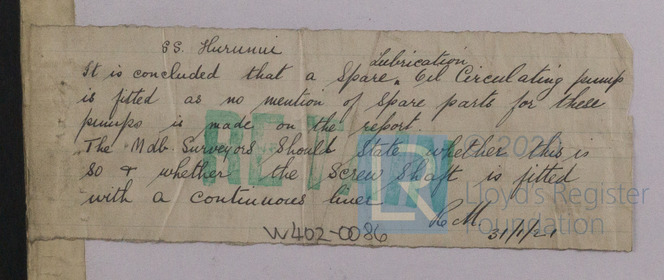 SS. Hurunui
It is concluded that a Spare Lubrication Oil Circulating pump
is fitted as no mention of Spare parts for these
pumps is made on the report.
The Mdb. Surveyors Should State whether this is
so & whether the Screw Shaft is fitted
with a continuous liner
31/1/21
W402-0086
RET
© 202
Lloyd's Register
Foundation